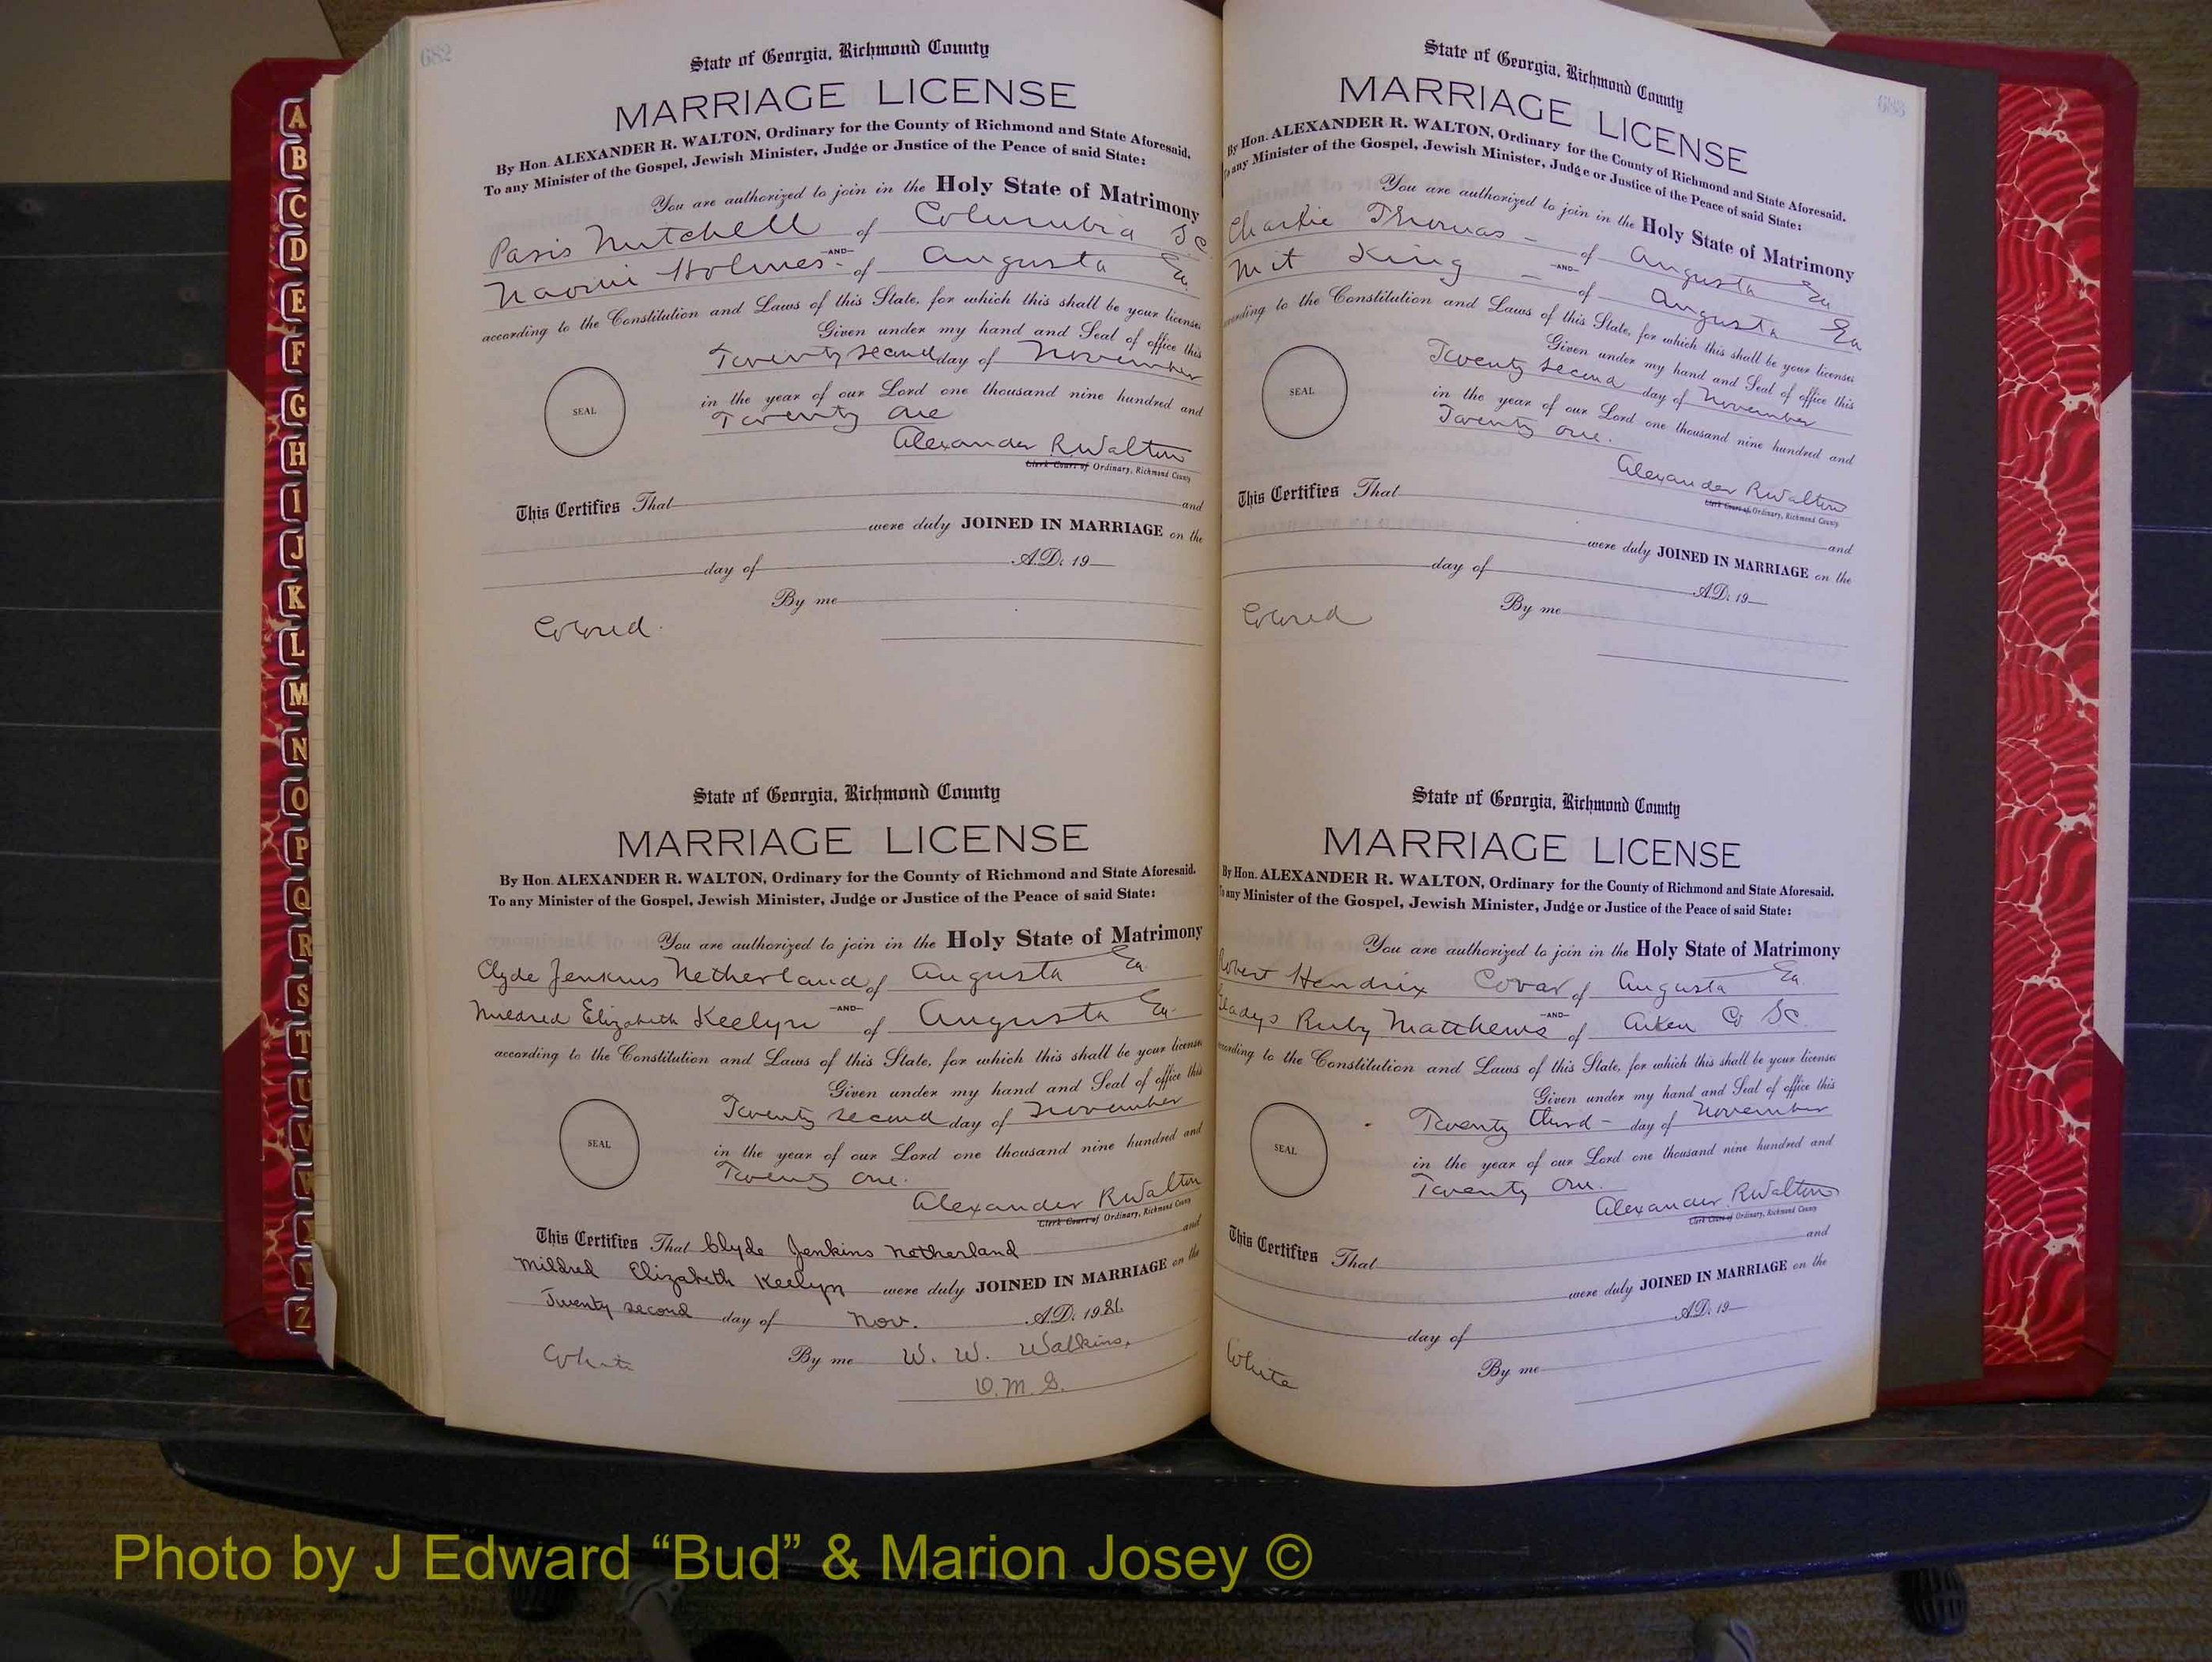 682
State of Georgia, Richmond County
MARRIAGE LICENSE
By Hon. ALEXANDER R. WALTON, Ordinary for the County of Richmond and State Aforesaid.
To any Minister of the Gospel, Jewish Minister, Judge or Justice of the Peace of said State:
You are authorized to join in the Holy State of Matrimony
Paris Mutchell of Columbia S C
—AND—
Naomi Holmes - of Augusta Ga
according to the Constitution and Laws of this State, for which this shall be your license
Given under my hand and Seal of office this
Twenty second day of November
in the year of our Lord one thousand nine hundred and
Twenty one
SEAL
Alexander R Walton
Clerk Court of Ordinary, Richmond County
This Certifies That and
were duly JOINED IN MARRIAGE on the
day of A.D. 19
By me
Colored.
State of Georgia, Richmond County
MARRIAGE LICENSE
By Hon. ALEXANDER R. WALTON, Ordinary for the County of Richmond and State Aforesaid.
To any Minister of the Gospel, Jewish Minister, Judge or Justice of the Peace of said State:
You are authorized to join in the Holy State of Matrimony
Clyde Jenkins Netherland of Augusta Ga.
—AND—
Mildred Elizabeth Keelyn of Augusta Ga.
according to the Constitution and Laws of this State, for which this shall be your license
Given under my hand and Seal of office this
Twenty second day of November
in the year of our Lord one thousand nine hundred and
Twenty one.
SEAL
Alexander R Walton
Clerk Court of Ordinary, Richmond County
This Certifies That Clyde Jenkins Netherland and
Mildred Elizabeth Keelyn were duly JOINED IN MARRIAGE on the
Twenty second day of Nov. A.D. 1921.
White By me W. W. Walkins,
O. M. G.
683
State of Georgia, Richmond County
MARRIAGE LICENSE
By Hon. ALEXANDER R. WALTON, Ordinary for the County of Richmond and State Aforesaid.
To any Minister of the Gospel, Jewish Minister, Judge or Justice of the Peace of said State:
You are authorized to join in the Holy State of Matrimony
Charlie Thomas - of Augusta Ga
—AND—
Mit King - of Augusta Ga
according to the Constitution and Laws of this State, for which this shall be your license
Given under my hand and Seal of office this
Twenty second day of November
in the year of our Lord one thousand nine hundred and
Twenty one.
SEAL
Alexander R Walton
Clerk Court of Ordinary, Richmond County
This Certifies That and
were duly JOINED IN MARRIAGE on the
day of A.D. 19
By me
Colored
State of Georgia, Richmond County
MARRIAGE LICENSE
By Hon. ALEXANDER R. WALTON, Ordinary for the County of Richmond and State Aforesaid.
To any Minister of the Gospel, Jewish Minister, Judge or Justice of the Peace of said State:
You are authorized to join in the Holy State of Matrimony
Robert Hendrix Covar of Augusta Ga.
—AND—
Gladys Ruby Matthews of Aiken Co SC.
according to the Constitution and Laws of this State, for which this shall be your license
Given under my hand and Seal of office this
Twenty third - day of November
in the year of our Lord one thousand nine hundred and
Twenty one.
SEAL
Alexander R Walton
Clerk Court of Ordinary, Richmond County
This Certifies That and
were duly JOINED IN MARRIAGE on the
day of A.D. 19
White By me
A
B
C
D
E
F
G
H
I
J
K
L
M
N
O
P
Q
R
S
T
U
V
W
Z
Photo by J Edward “Bud” & Marion Josey ©